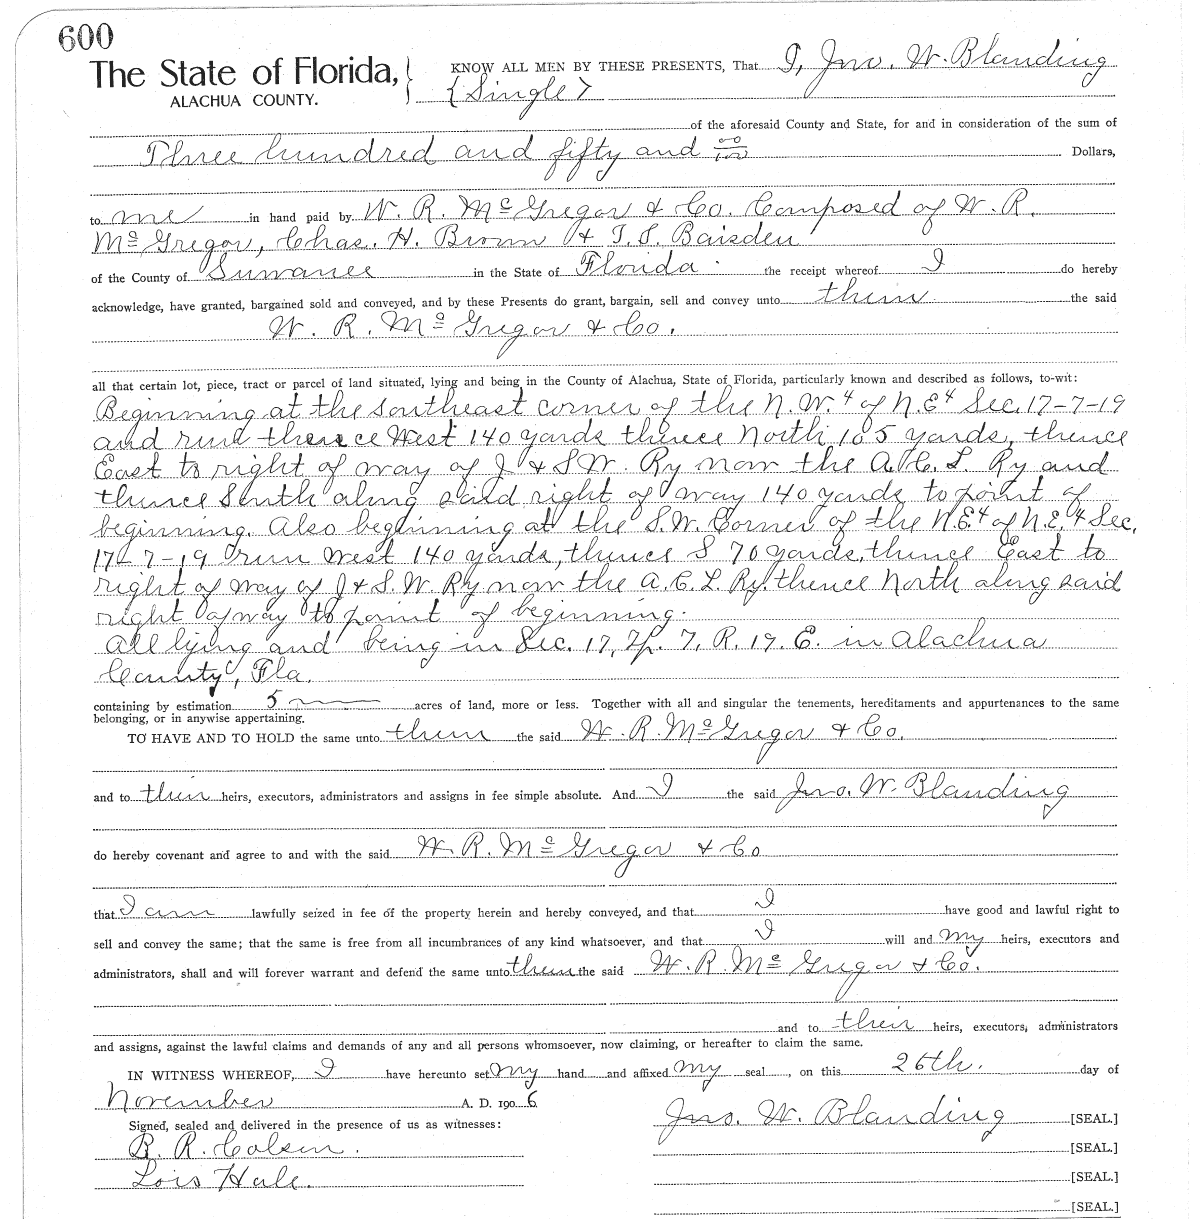 600
The State of Florida,
ALACHUA COUNTY.
KNOW ALL MEN BY THESE PRESENTS, That I, Jno. W. Blanding
{Single}
of the aforesaid County and State, for and in consideration of the sum of
Three hundred and fifty and 00/100 Dollars,
to me in hand paid by W. R. McGregor & Co. Composed of W. R.
McGregor, Chas. H. Brown & T. S. Baisden
of the County of Suwanee in the State of Florida. the receipt whereof I do hereby
acknowledge, have granted, bargained sold and conveyed, and by these Presents do grant, bargain, sell and convey unto them the said
W. R. McGregor & Co.
all that certain lot, piece, tract or parcel of land situated, lying and being in the County of Alachua, State of Florida, particularly known and described as follows, to-wit:
Beginning at the southeast corner of the N.W.4 of N.E4 Sec. 17-7-19
and run thence West 140 yards thence North 105 yards, thence
East to right of way of J & S W. Ry now the A. C. L. Ry and
thence South along said right of way 140 yards to point of
beginning. Also beginning at the S.W. Corner of the N.E4 of N.E.4 Sec.
17-7-19 run West 140 yards, thence S 70 yards, thence East to
right of way of J & S. W. Ry now the A. C. L. Ry. thence North along said
right of way to point of beginning.
All lying and being in Sec. 17, Tp. 7, R. 19. E. in Alachua
County, Fla.
containing by estimation 5 acres of land, more or less. Together with all and singular the tenements, hereditaments and appurtenances to the same
belonging, or in anywise appertaining.
TO HAVE AND TO HOLD the same unto them the said W. R. McGregor & Co.
and to their heirs, executors, administrators and assigns in fee simple absolute. And I the said Jno. W. Blanding
do hereby covenant and agree to and with the said W. R. McGregor & Co
that I am lawfully seized in fee of the property herein and hereby conveyed, and that I have good and lawful right to
sell and convey the same; that the same is free from all incumbrances of any kind whatsoever, and that I will and my heirs, executors and
administrators, shall and will forever warrant and defend the same unto them the said W. R. McGregor & Co.
and to their heirs, executors, administrators
and assigns, against the lawful claims and demands of any and all persons whomsoever, now claiming, or hereafter to claim the same.
IN WITNESS WHEREOF, I have hereunto set my hand and affixed my seal, on this 26th. day of
November A. D. 1906
Jno. W. Blanding [SEAL.]
Signed, sealed and delivered in the presence of us as witnesses:
B. R. Colson. [SEAL.]
Lois Hale. [SEAL.]
[SEAL.]